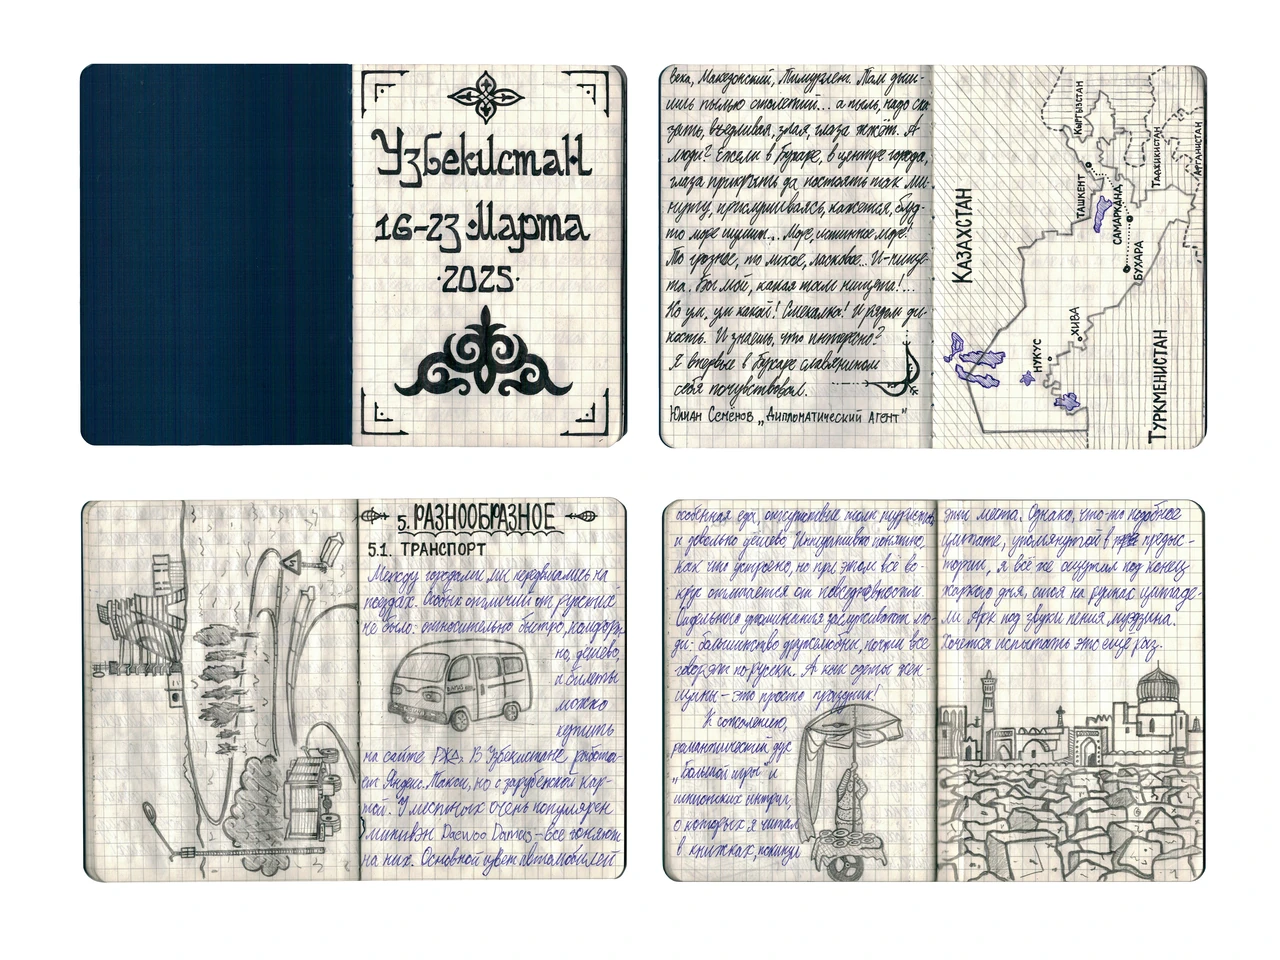 Узбекистан
16-23 Марта
·2025·
века, Македонский, Тимурлен. Там дыш-
ишь пылью столетий... а пыль, надо ска
зать, въедливая, злая, глаза жжёт. А
люди? Ежели в Бухаре, в центре города,
глаза прикрыть да постоять так ми-
нуту, прислушиваясь, кажется, буд-
то море шумит... Море, истинное море!
То грозное, то тихое, ласковое... И-нище-
та. Бог мой, какая там нищета!...
Но ум, ум какой! Смекалка! И рядом ди-
кость. И знаешь, что интересно?
Я впервые в Бухаре славянином
себя почувствовал.
Юлиан Семёнов „Дипломатический Агент"
КАЗАХСТАН
КЫРГЫЗСТАН
ТАШКЕНТ
САМАРКАНД
ТАДЖИКИСТАН
АФГАНИСТАН
БУХАРА
ХИВА
НУКУС
ТУРКМЕНИСТАН
5. РАЗНООБРАЗНОЕ
5.1. ТРАНСПОРТ
Между городами мы передвигались на
поездах. Особых отличий от русских
не было: относительно быстро, комфорт-
но, дёшево,
и билеты
можно
купить
на сайте РЖД. В Узбекистане работа-
ет Яндекс.Такси, но с зарубежной кар-
той. У местных очень популярен
минивэн Daewoo Damas – все гоняют
на них. Основной цвет автомобилей
особенная еда, отсутствие толп туристов
и довольно дёшево. Интуитивно понятно,
как что устроено, но при этом всё во-
круг отличается от повседневности.
Отдельного упоминания заслуживают лю-
ди: большинство дружелюбны, почти все
говорят по-русски. А как одеты жен-
щины – это просто праздник!
К сожалению,
романтический дух
„большой игры" и
шпионских интриг,
о которых я читал
в книжках, покинул
эти места. Однако, что-то подобное
цитате, упомянутой в предыс-
тории, я всё же ощутил под конец
жаркого дня, стоя на руинах цитаде-
ли Арк под звуки пения муэдзина.
Хочется испытать это ещё раз.